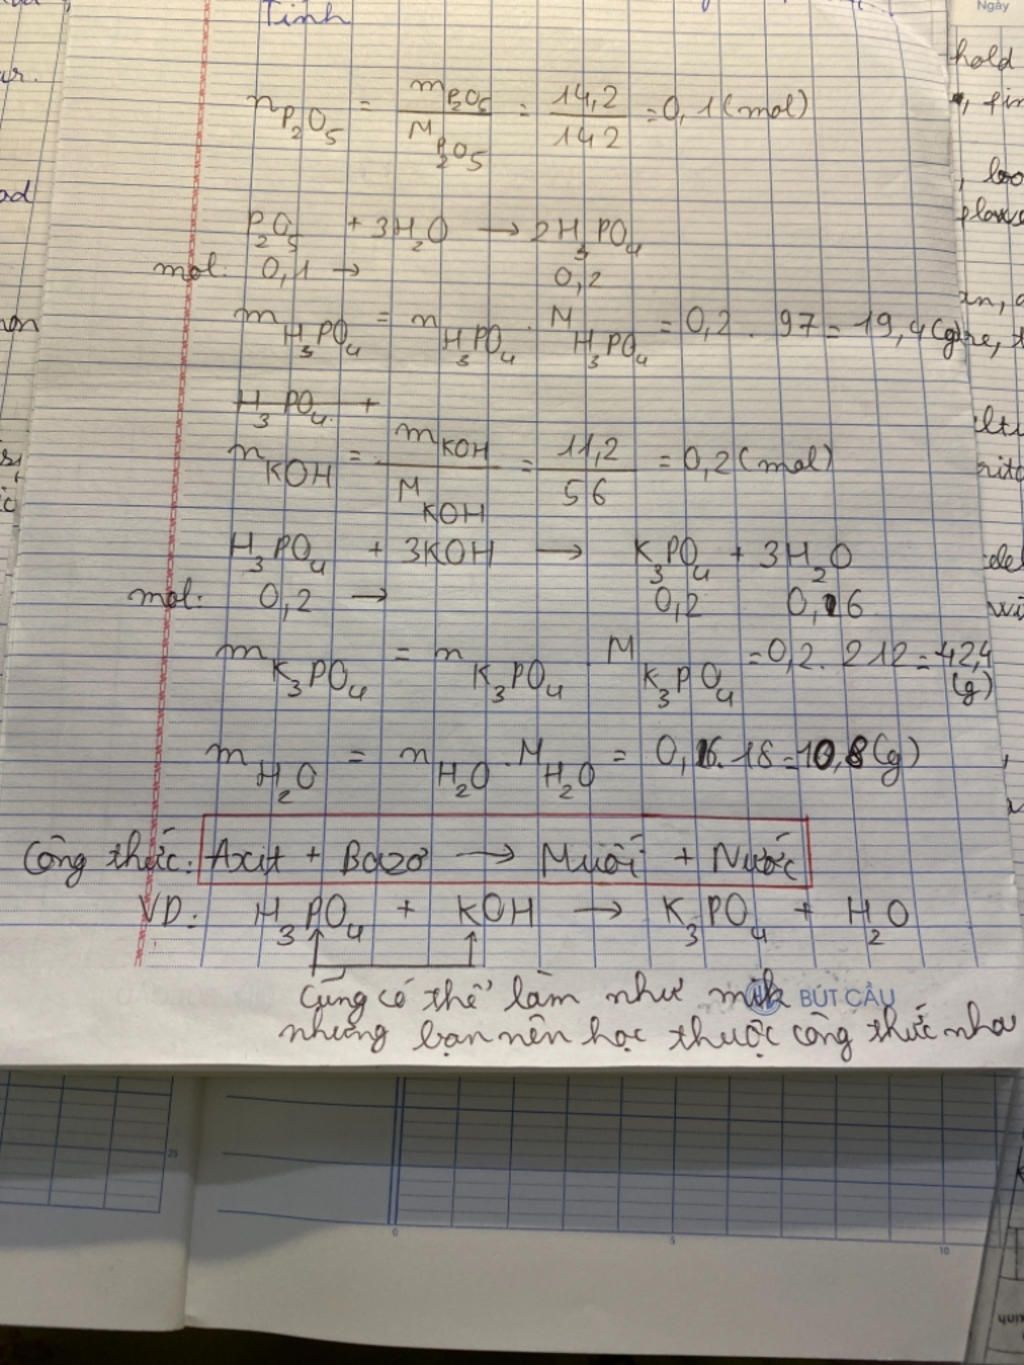 Tính
n P2O5 = m P2O5 / M P2O5 = 14,2 / 142 = 0,1 (mol)
P2O5 + 3H2O → 2H3PO4
mol: 0,1 → 0,2
m H3PO4 = n H3PO4 . M H3PO4 = 0,2 . 97 = 19,4 (g)
H3PO4 +
n KOH = m KOH / M KOH = 11,2 / 56 = 0,2 (mol)
H3PO4 + 3KOH → K3PO4 + 3H2O
mol: 0,2 → 0,2 0,6
m K3PO4 = n K3PO4 . M K3PO4 = 0,2 . 212 = 42,4 (g)
m H2O = n H2O . M H2O = 0,6 . 18 = 10,8 (g)
Công thức: Axit + Bazơ → Muối + Nước
VD: H3PO4 + KOH → K3PO4 + H2O
Cũng có thể làm như mik
BÚT CẦU
nhưng bạn nên học thuộc công thức nha
Ngày
hold
25
0
5
10